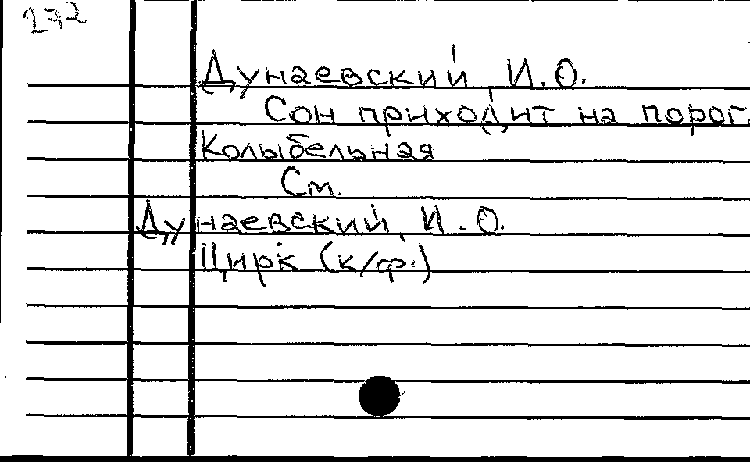 272
Дунаевский, И.О.
Сон приходит на порог.
Колыбельная
См.
Дунаевский, И.О.
Цирк (к/ф.)